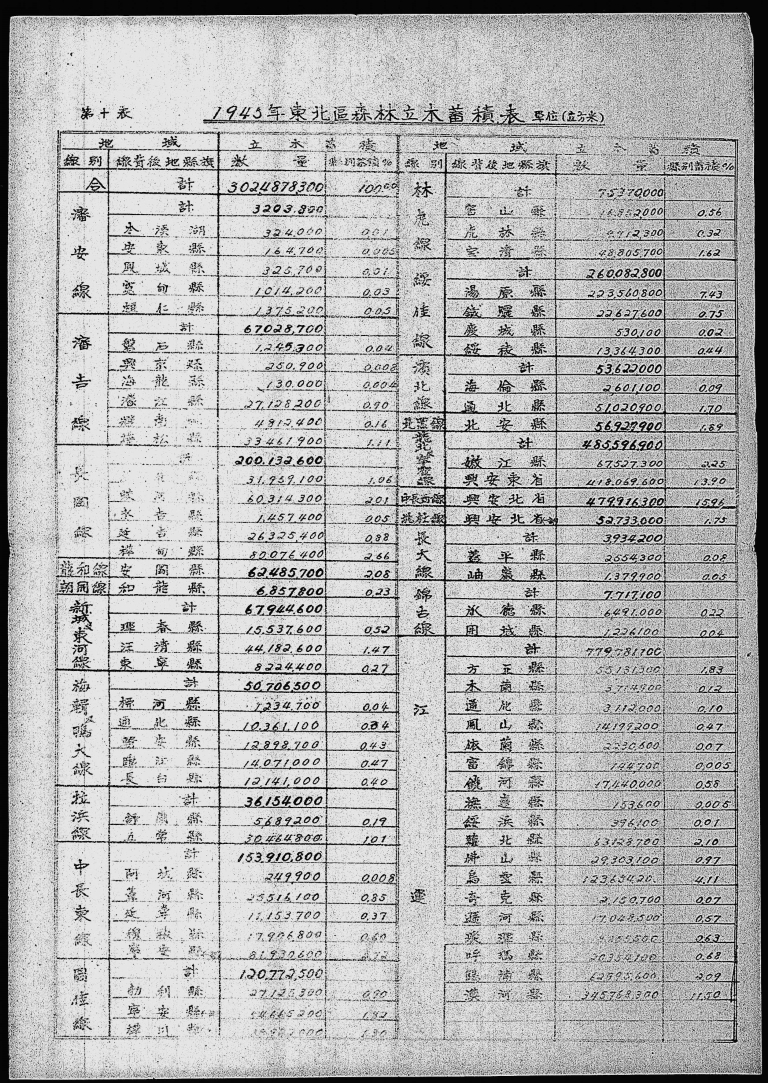 第十表
1945年東北區森林立木蓄積表 單位(立方米)
地 域 立木蓄積
線別 線背後地縣旗 數量 縣別蓄積%
合計 3024878,300 100.00
瀋安線
計 3203,800
本溪湖 324,000 0.01
安東縣 164,700 0.005
鳳城縣 325,700 0.01
寬甸縣 1,014,200 0.03
桓仁縣 1,375,200 0.05
瀋吉線
計 67028,700
磐石縣 1,245,300 0.04
興京縣 250,900 0.008
海龍縣 130,000 0.004
濛江縣 27,128,200 0.90
輝南縣 4812,400 0.16
撫松縣 33,461,900 1.11
長圖線
計 200,132,600
31,959,100 1.06
蛟河縣 60,314,300 2.01
永吉縣 1,457,400 0.05
延吉縣 26,325,400 0.88
樺甸縣 80,076,400 2.66
龍和線 安圖縣 62,485,700 2.08
朝開線 和龍縣 6,857,800 0.23
新城東河線
計 67,944,600
琿春縣 15,537,600 0.52
汪清縣 44,182,600 1.47
東寧縣 8,224,400 0.27
計 50,706,500
柳河縣 1,234,700 0.04
通化縣 10,361,100 0.34
輯安縣 12,898,700 0.43
臨江縣 14,071,000 0.47
長白縣 12,141,000 0.40
拉濱線
計 36,154,000
舒蘭縣 5,689,200 0.19
五常縣 30,464,800 1.01
中長東線
計 153,910,800
阿城縣 249,900 0.008
葦河縣 25,516,100 0.85
延壽縣 11,153,700 0.37
穆稜縣 17,996,800 0.60
寧安縣 81,930,600 2.72
圖佳線
計 120,772,500
勃利縣 27,125,300 0.90
寧安縣 54,665,200 1.82
樺川縣 1.30
地 域 立木蓄積
線別 線背後地縣旗 數量 縣別蓄積%
林虎線
計 75,370,000
寶山縣 16,852,000 0.56
虎林縣 9,712,300 0.32
寶清縣 48,805,700 1.62
綏佳線
計 260,082,800
湯原縣 223,560,800 7.43
鐵驪縣 22,627,600 0.75
慶城縣 530,100 0.02
綏稜縣 13,364,300 0.44
濱北線
計 53,622,000
海倫縣 2,601,100 0.09
通北縣 51,020,900 1.70
北黑線 北安縣 56,927,900 1.89
計 485,596,900
嫩江縣 67,527,300 2.25
興安東省 418,069,600 13.90
中長西線 興安北省 479,916,300 15.96
興安北省 52,733,000 1.75
長大線
計 3934,200
蓋平縣 2554,300 0.08
岫巖縣 1,379,900 0.05
錦古線
計 7,717,100
承德縣 6491,000 0.22
圍場縣 1,226,100 0.04
江運
計 779,781,100
方正縣 55,131,300 1.83
木蘭縣 3,714,900 0.12
通化縣 3,112,000 0.10
鳳山縣 14,199,200 0.47
依蘭縣 2,230,600 0.07
富錦縣 144,700 0.005
饒河縣 17,440,000 0.58
撫遠縣 153,600 0.005
綏濱縣 396,100 0.01
蘿北縣 63,128,700 2.10
佛山縣 29,303,100 0.97
烏雲縣 4.11
奇克縣 2,150,700 0.07
遜河縣 17,048,500 0.57
璦琿縣 0.63
呼瑪縣 20354,100 0.68
鷗浦縣 62,895,600 2.09
漠河縣 345,768,300 11.50